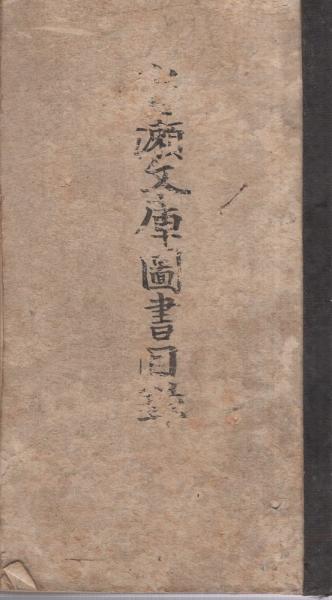 瀬文庫圖書目録